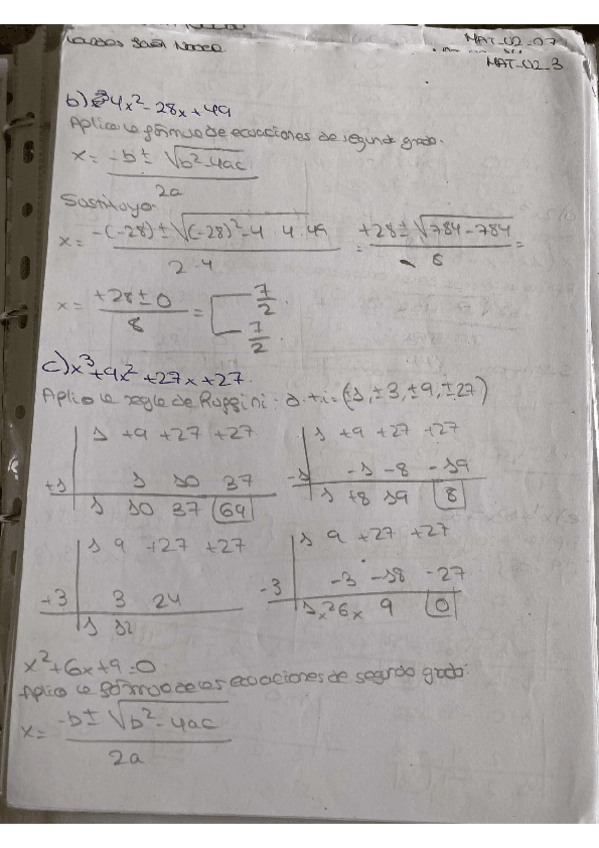 MAT_02_07
MAT_02_3
b) 4x²-28x+49
Aplico la fórmula de ecuaciones de segundo grado.
x = -b ± √b²-4ac / 2a
Sustituyo.
x = -(-28) ± √(-28)²-4·4·49 / 2·4 = +28 ± √784-784 / 8 =
x = +28 ± 0 / 8 = 7/2
7/2
c) x³+9x²+27x+27.
Aplico la regla de Ruffini: (1, ±3, ±9, ±27)
1 +9 +27 +27
+1 1 10 37
1 10 37 64
1 +9 +27 +27
-1 -1 -8 -19
1 +8 19 8
1 9 +27 +27
+3 3 24
1 12
1 9 +27 +27
-3 -3 -18 -27
1x² 6x 9 0
x²+6x+9=0
Aplico la fórmula de las ecuaciones de segundo grado:
x = -b ± √b²-4ac / 2a